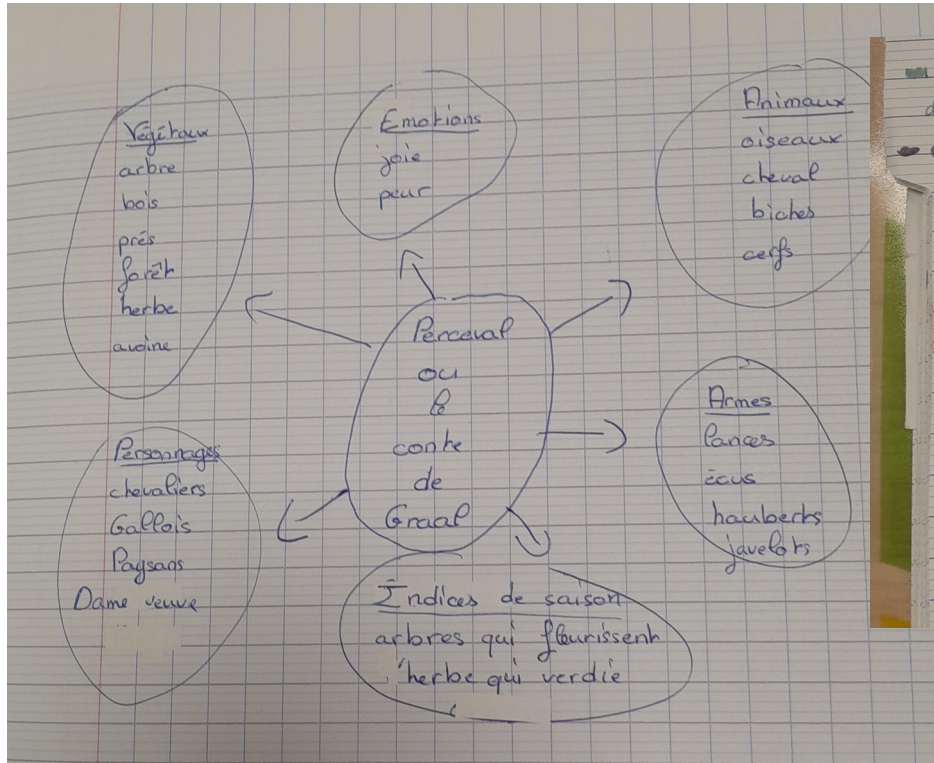 Végétaux
arbre
bois
prés
forêt
herbe
avoine
Emotions
joie
peur
Animaux
oiseaux
cheval
biches
cerfs
Perceval
ou
le
conte
de
Graal
Armes
lances
écus
hauberts
javelots
Personnages
chevaliers
Gallois
Paysans
Dame veuve
Indices de saison
arbres qui fleurissent
'herbe qui verdie